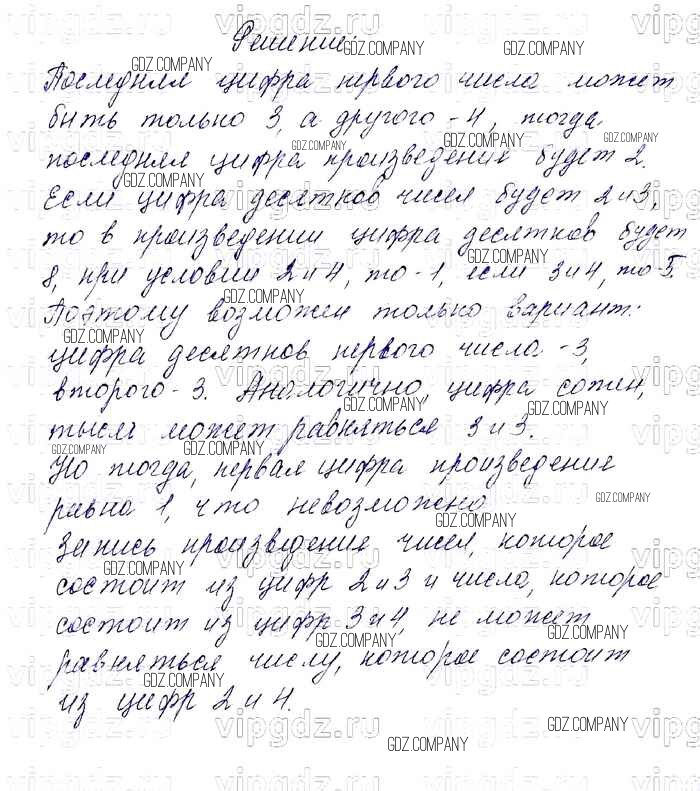 Решение:
Последняя цифра первого числа может
быть только 3, а другого - 4, тогда
последняя цифра произведения будет 2.
Если цифра десятков чисел будет 2 и 3,
то в произведении цифра десятков будет
8, при условии 2 и 4, то - 1, если 3 и 4, то - 5.
Поэтому возможен только вариант:
цифра десятков первого числа - 3,
второго - 3. Аналогично, цифра сотен,
тысяч может равняться 3 и 3.
Но тогда, первая цифра произведение
равна 1, что невозможно
Запись произведения чисел, которое
состоит из цифр 2 и 3 и числа, которое
состоит из цифр 3 и 4, не может
равняться числу, которое состоит
из цифр 2 и 4.
vipgdz.ru
GDZ.COMPANY